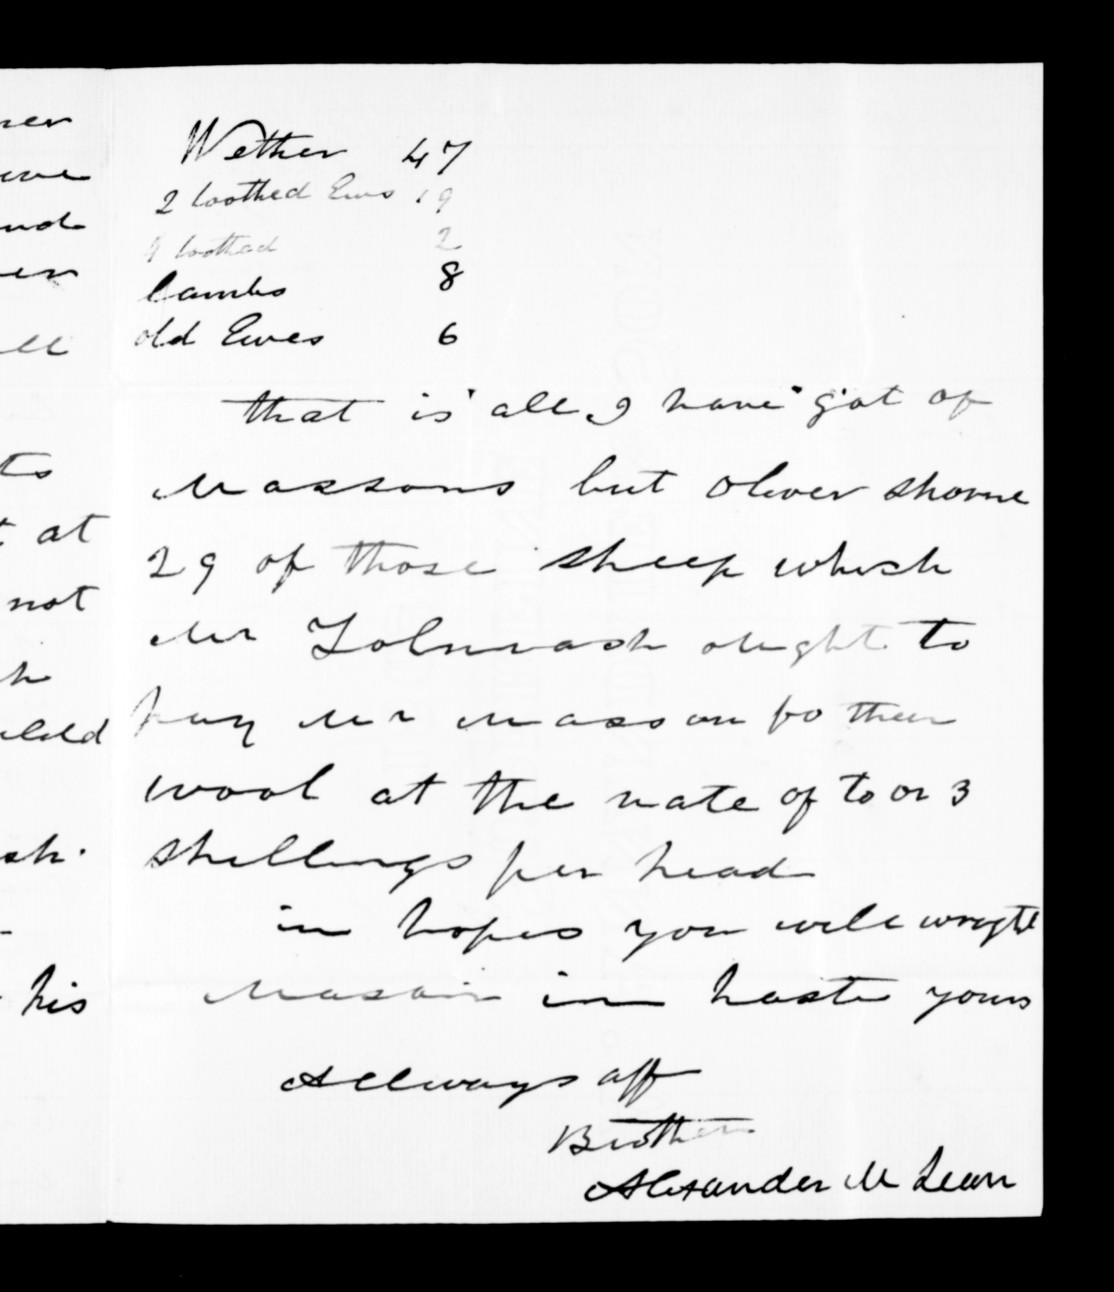 ner
nd
ts
t at
not
his
Wether 47
2 toothed Ews 19
toothed 2
lambs 8
old Ewes 6
that is all I have got of
Massons but Oliver shorne
29 of those sheep which
Mr Tolmash ought to
pay Mr Masson fo ther
wool at the rate of to or 3
shellings per head
in hopes you will wryte
Mason in haste yours
Allways aff
Brother
Alexander McLean